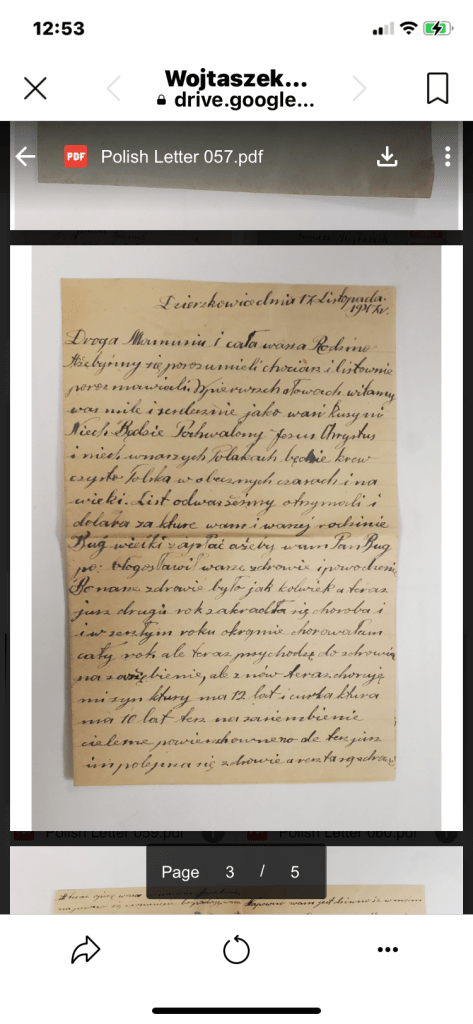 12:53
Wojtaszek...
drive.google...
PDF Polish Letter 057.pdf
Dzierzkowice dnia 17 Listopada
Droga Mamusiu i cała wasza Rodzino
Ażebyśmy się porozumieli chociasz i listownie
porozmawiali. W pierwszch słowach witamy
was mile i serdecznie jako wasi kuzyni
Niech Będzie Pochwalony Jezus Chrystus
i niech wnaszych Polakach będzie krew
czysto Polska w obecznych czasach i na
wieki. List odwas żeśmy otrzymali i
dolara za kture wam i waszej rodzinie
Bug wielki zapłać ażeby wam Pan Bug
po: błogosławił wasze zdrowie i powodzenie
Bo nasze zdrowie było jak kolwiek a teraz
jusz drugi rok zakradła się choroba i
i w zeszłym roku okropnie chorowałam
cały rok ale teraz psychodzę do zdrowia
na ale znów teraz chorują
mi syn ktury ma 12 lat i curka ktura
ma 10 lat tesz na
cielesne ale tesz jusz
im polepsza się zdrowie a reszta są zdrowe
Polish Letter 059.pdf
Polish Letter 060.pdf
Page 3 / 5